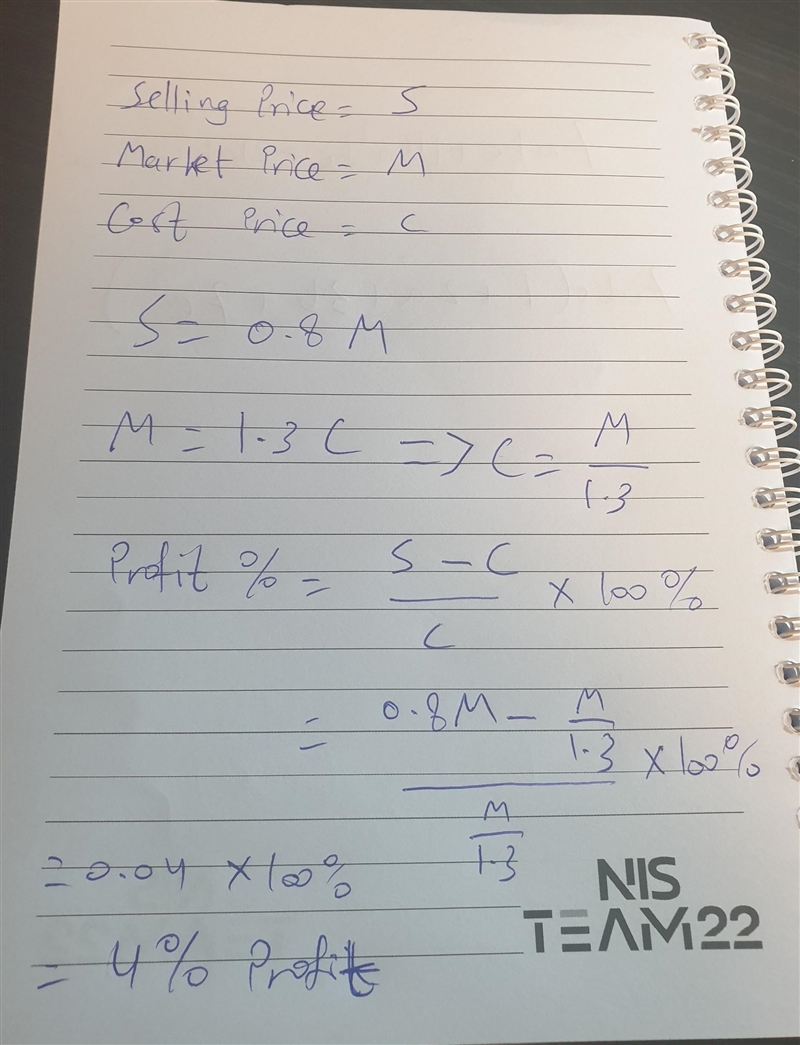 Selling Price = S
Market Price = M
Cost Price = C
S = 0.8 M
M = 1.3 C => C = M / 1.3
Profit % = (S - C) / C × 100%
= (0.8M - M / 1.3) / (M / 1.3) × 100%
= 0.04 × 100%
= 4% Profit
NIS
TEAM22